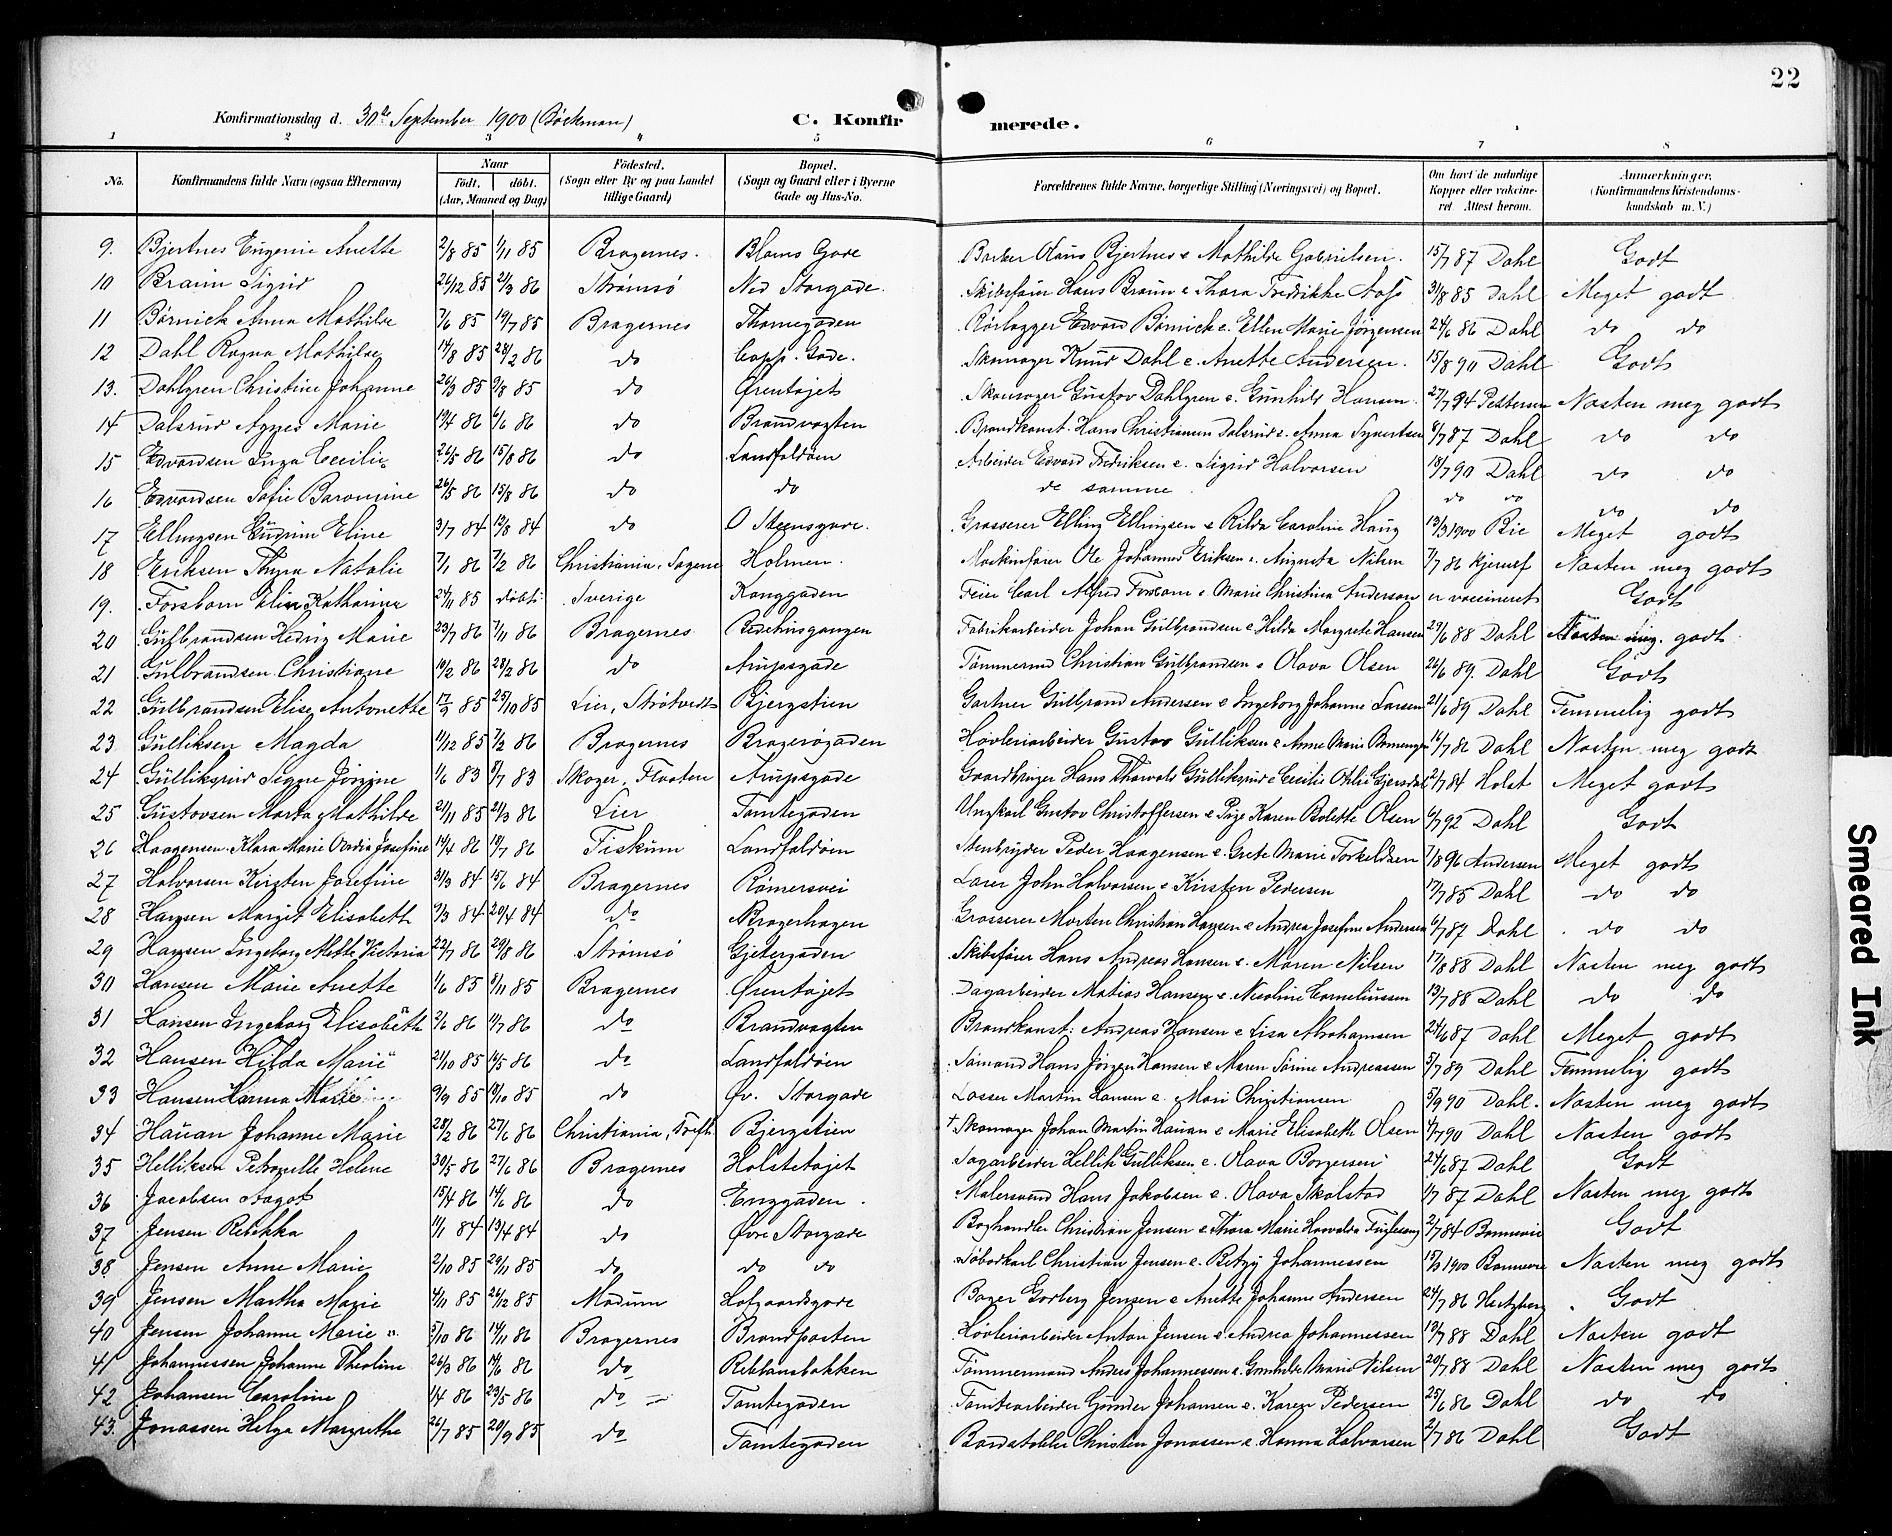 22
Konfirmationsdag d. 30te September 1900 (Böckman) C. Konfirmerede.
1 2 3 4 5 6 7 8
No. Konfirmandens fulde Navn (ogsaa Efternavn) Naar født. døbt. (Aar, Maaned og Dag) Födested. (Sogn eller By og paa Landet tillige Gaard) Bopæl. (Sogn og Gaard eller i Byerne Gade og Hus-No. Forældrenes fulde Navne, borgerlige Stilling (Næringsvei) og Bopæl. Om havt de naturlige Kopper eller vakcineret. Attest herom. Anmærkninger. (Konfirmandens Kristendomskundskab m. V.)
9. Bjertnes Eugenie Anette 2/8 85 1/11 85 Bragernes. Bloms Gade Barber Olaus Bjertnes & Mathilde Gabrielsen. 15/7 87 Dahl Godt
10 Braun Sigrid 26/12 85 21/3 86 Strømsö Ned Storgade. Skibsförer Hans Braun & Thora Fredrikke 31/8 85 Dahl Meget godt
11 Börnick Anna Mathilde 7/6 85 19/7 85 Bragernes Thornegaden Rörlægger Edvard Börnick & Ellen Marie Jörgensen 24/6 86 Dahl do do
12 Dahl Ragna Mathilde 14/8 85 28/2 86 do Copp. Gade. Skomager Knud Dahl & Anette Andersen. 15/8 90 Dahl Godt
13. Dahlgren Christine Johanne 26/3 85 9/8 85 do Ørentöjet Skomager Gustav Dahlgren & Gunhild Hansen. 27/7 94 Pettersen Næsten meg godt
14 Dalsrud Agnes Marie 19/4 86 6/6 86 do Brandvagten Brandkonst. Hans Christiansen Dalsrud & Anna Syvertsen 8/7 87 Dahl do do
15 Edvardsen Inga Cecilie 26/5 86 15/8 86 do Landfaldöen Arbeider Edvard Fredriksen & Sigrid Halvorsen 18/7 90 Dahl do do
16 Edvardsen Sofie Baromine 26/5 86 15/8 86 do do de samme do do do do
17 Ellingsen Gudrun Eline 3/7 84 12/8 84 do O Steensgade. Grosserer Elling Ellingsen & Rilda Caroline Haug 13/3 1900 Bie Meget godt
18 Eriksen Thyra Natalie 7/1 86 7/2 86 Christiania. Sagene Holmen. Maskinförer Ole Johannes Eriksen & Augusta Nilsen 7/7 86 Kjerulf Næsten meg godt
19. Forsbom Elin Katharina 24/11 85 döbt Sverige Konggaden Feier Carl Alfred Forsbom & Marie Christina Anderson er vaccineret Godt
20 Gulbrandsen Hedvig Marie 23/7 86 7/11 86 Bragernes Bedehusgangen Fabrikarbeider Johan Gulbrandsen & Hilda Margrete Hansen 29/6 88 Dahl Næsten meg. godt
21 Gulbrandsen Christiane 19/2 86 28/2 86 do Arupsgade Tömmermd Christian Gulbrandsen & Olava Olsen 26/6 89. Dahl Godt
22 Gulbrandsen Elise Antonette 17/9 85 25/10 85 Lier, Strötvedt Bjergstien Gartner Gulbrand Andersen & Ingeborg Johanne Larsen 21/6 89 Dahl Temmelig godt
23. Gulliksen Magda 11/12 85 7/2 86 Bragernes Bragerøgaden Høvleriarbeider Gustav Gulliksen & Anne Marie 16/7 86 Dahl Næsten meg godt
24 Gulliksrud Signe Jörgine 1/6 83 8/7 83 Skoger, Flaaten Arupsgade Gaardbruger Hans Thorvald Gulliksrud & Cecilie Othilie 2/7 84 Holst Meget godt
25 Gustavsen Marta Mathilde 21/11 85 21/3 86 Lier Tomtegaden Ungkarl Gustav Christoffersen & Pige Karen Bolette Olsen 6/7 92 Dahl Godt
26 Haagensen Klara Marie Ovedia Josefine 14/4 86 18/7 86 Fiskum Landfaldöen Stenbryder Peder Haagensen & Grete Marie Torkeldsen 7/8 96 Andersen Meget godt
27 Halvorsen Kirsten Josefine 31/3 84 15/6 84 Bragernes Römersvei Laver John Halvorsen & Kirsten Pedersen 17/7 85 Dahl do do
28 Hansen Margit Elisabeth 9/3 84 20/4 84 do Bragerhagen Grosserer Morten Christian Hansen & Andrea Josefine Andersen 6/7 87 Dahl do do
29 Hansen Ingeborg Mette Victoria 22/7 86 29/8 86 Strömsö Gjetergaden Skibsförer Hans Andreas Hansen & Maren Nilsen 17/8 88 Dahl Næsten meg godt
30 Hansen Marie Anette 1/6 85 8/11 85 Bragernes Ørentöjet Dagarbeider Matias Hansen & Nicoline Corneliussen 13/7 88 Dahl do do
31 Hansen Ingeborg Elisabeth 2/6 86 11/7 86 do Brandvagten Brandkonst: Andreas Hansen & Lisa Abrahamsen 24/6 87 Dahl Meget godt
32 Hansen Hilda Marie 21/10 85 16/5 86 do Landfaldöen Sömand Hans Jörgen Hansen & Maren Sörine Andreassen 5/7 89 Dahl Temmelig godt
33 Hansen Hanna Marie 9/9 85 18/10 85 do Øv. Storgade Losser Martin Hansen & Mari Christiansen 5/9 90 Dahl. Næsten meg godt
34 Hauan Johanne Marie 28/2 86 27/6 86 Christiania, Trefh. Bjergstien † Skomager Johan Martin Hauan & Marie Elisabeth Olsen 4/7 90 Dahl Næsten godt
35 Helliksen Petronelle Helene 30/5 86 27/6 86 Bragernes Holstetöjet Sagarbeider Hellik Gulliksen & Olava Borgersen 24/6 87 Dahl Godt
36 Jacobsen Aagot 15/4 86 14/6 86 do Enggaden. Malersvend Hans Jakobsen & Olava Skolstad 1/7 87 Dahl Næsten meg godt
37 Jensen Rebikka 11/1 84 13/4 84 do Øvre Storgade Boghandler Christian Jensen & Thora Marie 2/7 84 Bonnevie Godt
38 Jensen Anne Marie 2/10 85 29/11 85 do do do Christian Jensen & Betzy Johannessen 15/3 1900 Bonnevie Næsten meg godt
39 Jensen Martha Marie 4/11 85 26/12 85 Modum Hofgaardsgade Bager Gorberg Jensen & Anette Johanne Andersen 24/7 86 Hertzberg Godt
40 Jensen Johanne Marie 5/10 86 14/11 86 Bragernes Brandposten Høvleriarbeider Anton Jensen & Andrea Johannessen 13/7 88 Dahl Næsten godt
41 Johannessen Johanne Theoline 26/3 86 14/6 86 do Rebbansbakken Tömmermand Anders Johannessen & Gunhilde Marie Nilsen 20/7 88 Dahl Næsten meg godt
42 Johansen Caroline 1/4 86 23/5 86 do Tomtegaden Tomtearbeider Gunder Johansen & Karen Pedersen 25/6 86 Dahl do do
43. Jonassen Helga Margrethe 26/7 85 20/9 85 do Tomtegaden Bordstabler Christen Jonassen & Hanna Halvorsen 2/7 86 Dahl Godt
Smeared Ink